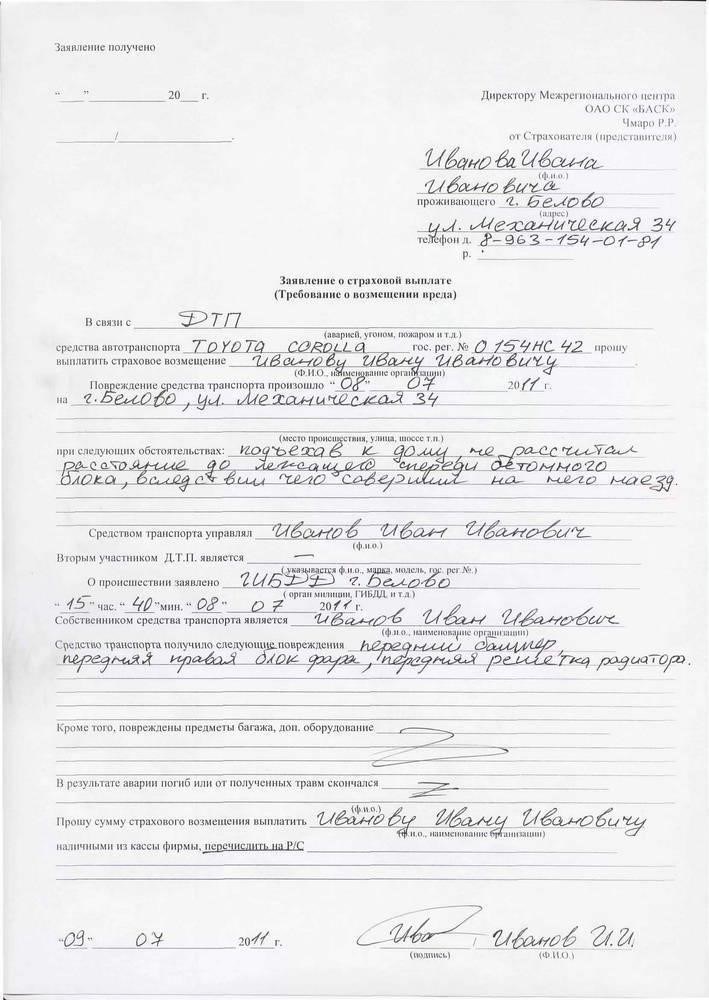 Заявление получено
“____”____________ 20___ г.
Директору Межрегионального центра
ОАО СК «БАСК»
Чмаро Р.Р.
__________/__________________.
от Страхователя (представителя)
Иванова Ивана
(ф.и.о.)
Ивановича
проживающего г. Белово
(адрес)
ул. Механическая 34
телефон д. 8-963-154-01-81
р.
Заявление о страховой выплате
(Требование о возмещении вреда)
В связи с ДТП
(аварией, угоном, пожаром и т.д.)
средства автотранспорта TOYOTA COROLLA гос. рег. № О 154 НС 42 прошу
выплатить страховое возмещение Иванову Ивану Ивановичу
(Ф.И.О., наименование организации)
Повреждение средства транспорта произошло “08” 07 2011 г.
на г. Белово, ул. Механическая 34
(место происшествия, улица, шоссе т.п.)
при следующих обстоятельствах: подъехав к дому, не рассчитал
расстояние до лежащего спереди бетонного
блока, вследствии чего совершил на него наезд.
Средством транспорта управлял Иванов Иван Иванович
(ф.и.о.)
Вторым участником Д.Т.П. является —
( указывается ф.и.о., марка, модель, гос. рег.№.)
О происшествии заявлено ГИБДД г. Белово
( орган милиции, ГИБДД, и т.д.)
“ 15 ” час. “ 40 ”мин. “ 08 ” 07 2011 г.
Собственником средства транспорта является Иванов Иван Иванович
(ф.и.о., наименование организации)
Средство транспорта получило следующие повреждения передний бампер,
передняя правая блок фара, передняя решетка радиатора.
Кроме того, повреждены предметы багажа, доп. оборудование
В результате аварии погиб или от полученных травм скончался
(ф.и.о.)
Прошу сумму страхового возмещения выплатить Иванову Ивану Ивановичу
(ф.и.о., наименование организации)
наличными из кассы фирмы, перечислить на Р/С
“09” 07 2011 г.
Ива / Иванов И.И.
(подпись) (Ф.И.О.)